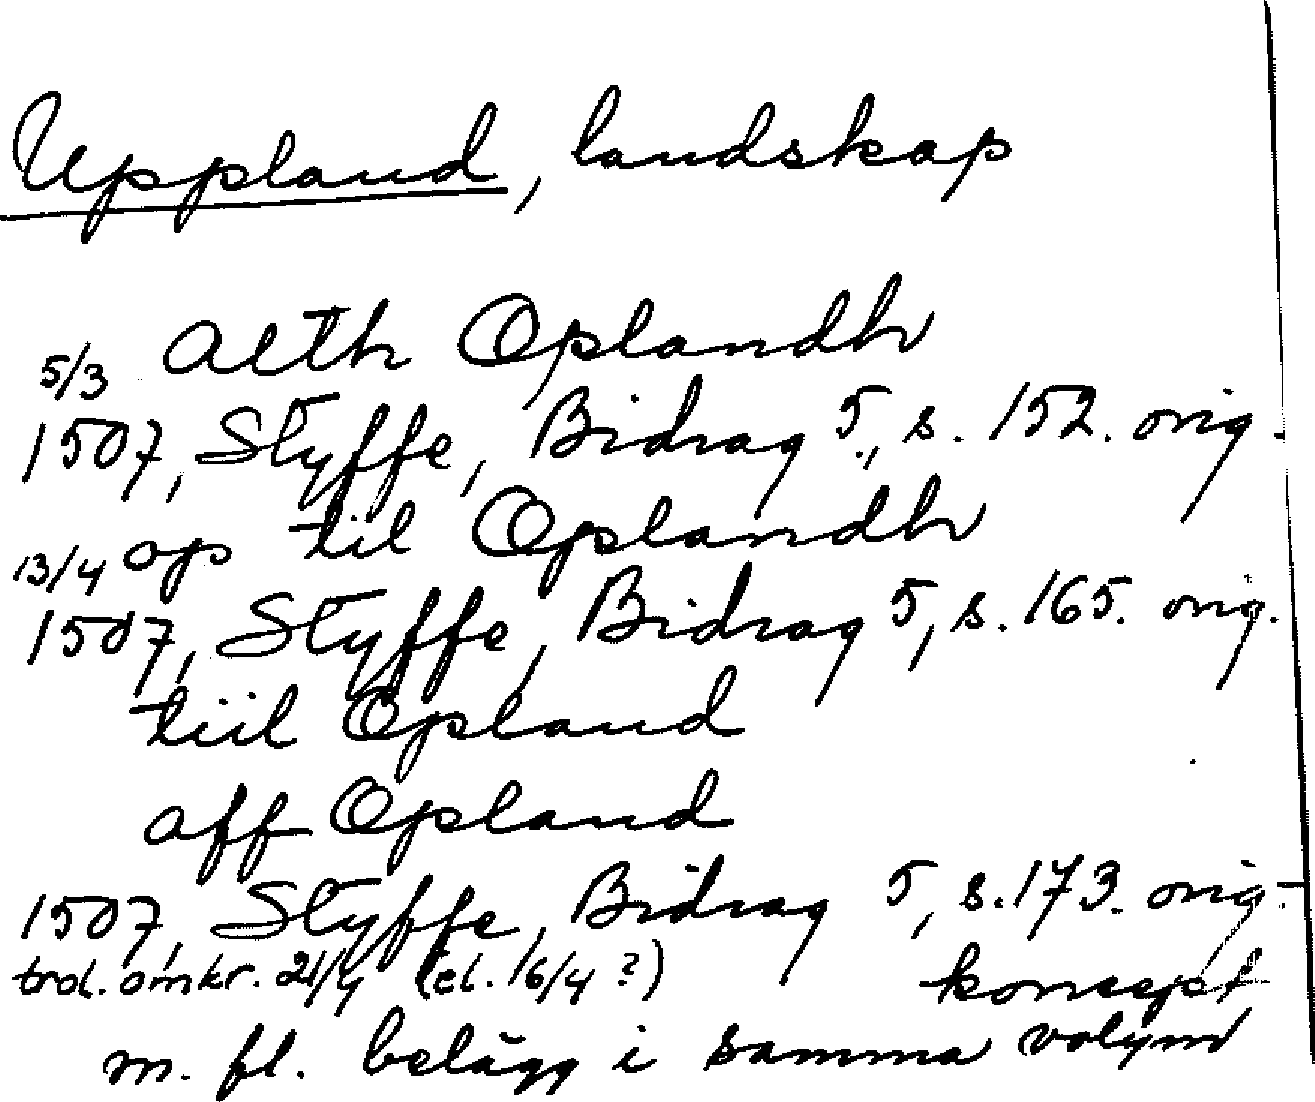 Uppland, landskap
5/3 alth Oplandh
1507, Styffe, Bidrag 5, s. 152. orig.
13/4 op til Oplandh
1507, Styffe, Bidrag 5, s. 165. orig.
tiil Opland
aff Opland
1507, Styffe, Bidrag 5, s. 173. orig.
trol. omkr. 21/4 (el. 16/4 ?) koncept
m. fl. belägg i samma volym